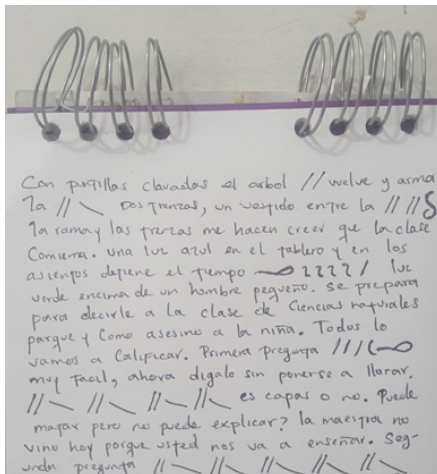 Con puntillas clavadas el arbol // vuelve y arma
la // \ Dos trenzas, un vestido entre la // // S
la rama y las trenzas me hacen creer que la clase
Comienza. Una luz azul en el tablero y en los
asientos detiene el tiempo luz
verde encima de un hombre pequeño. Se prepara
para decirle a la clase de Ciencias naturales
porque y Como asesino a la niña. Todos lo
vamos a Calificar. Primera Pregunta ///
muy facil, ahora digalo sin ponerse a llorar.
// \ // \ // \ // \ es capas o no. Puede
matar pero no puede explicar? la maestra no
vino hoy porque usted nos va a enseñar. Seg-
unda pregunta // \ // \ // \ // \ // \